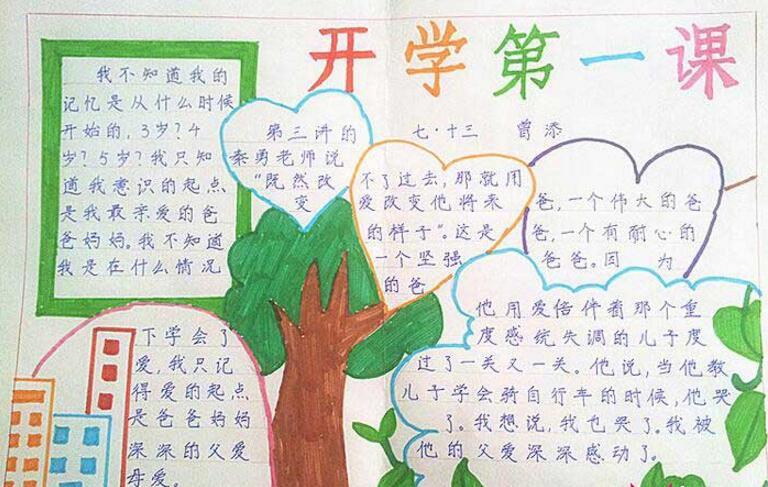 开学第一课
七·十三 曾添
我不知道我的
记忆是从什么时候
开始的,3岁?4
岁?5岁?我只知
道我意识的起点
是我最亲爱的爸
爸妈妈。我不知道
我是在什么情况
下学会了
爱,我只记
得爱的起点
是爸爸妈妈
深深的父爱
母爱。
第三讲的
秦勇老师说
“既然改
变
不了过去,那就用
爱改变他将来
的样子”。这是
一个坚强
的爸
爸,一个伟大的爸
爸,一个有耐心的
爸爸。因 为
他用爱陪伴着那个重
度感统失调的儿子度
过了一关又一关。他说,当他教
儿子学会骑自行车的时候,他哭
了。我想说,我也哭了。我被
他的父爱深深感动了。